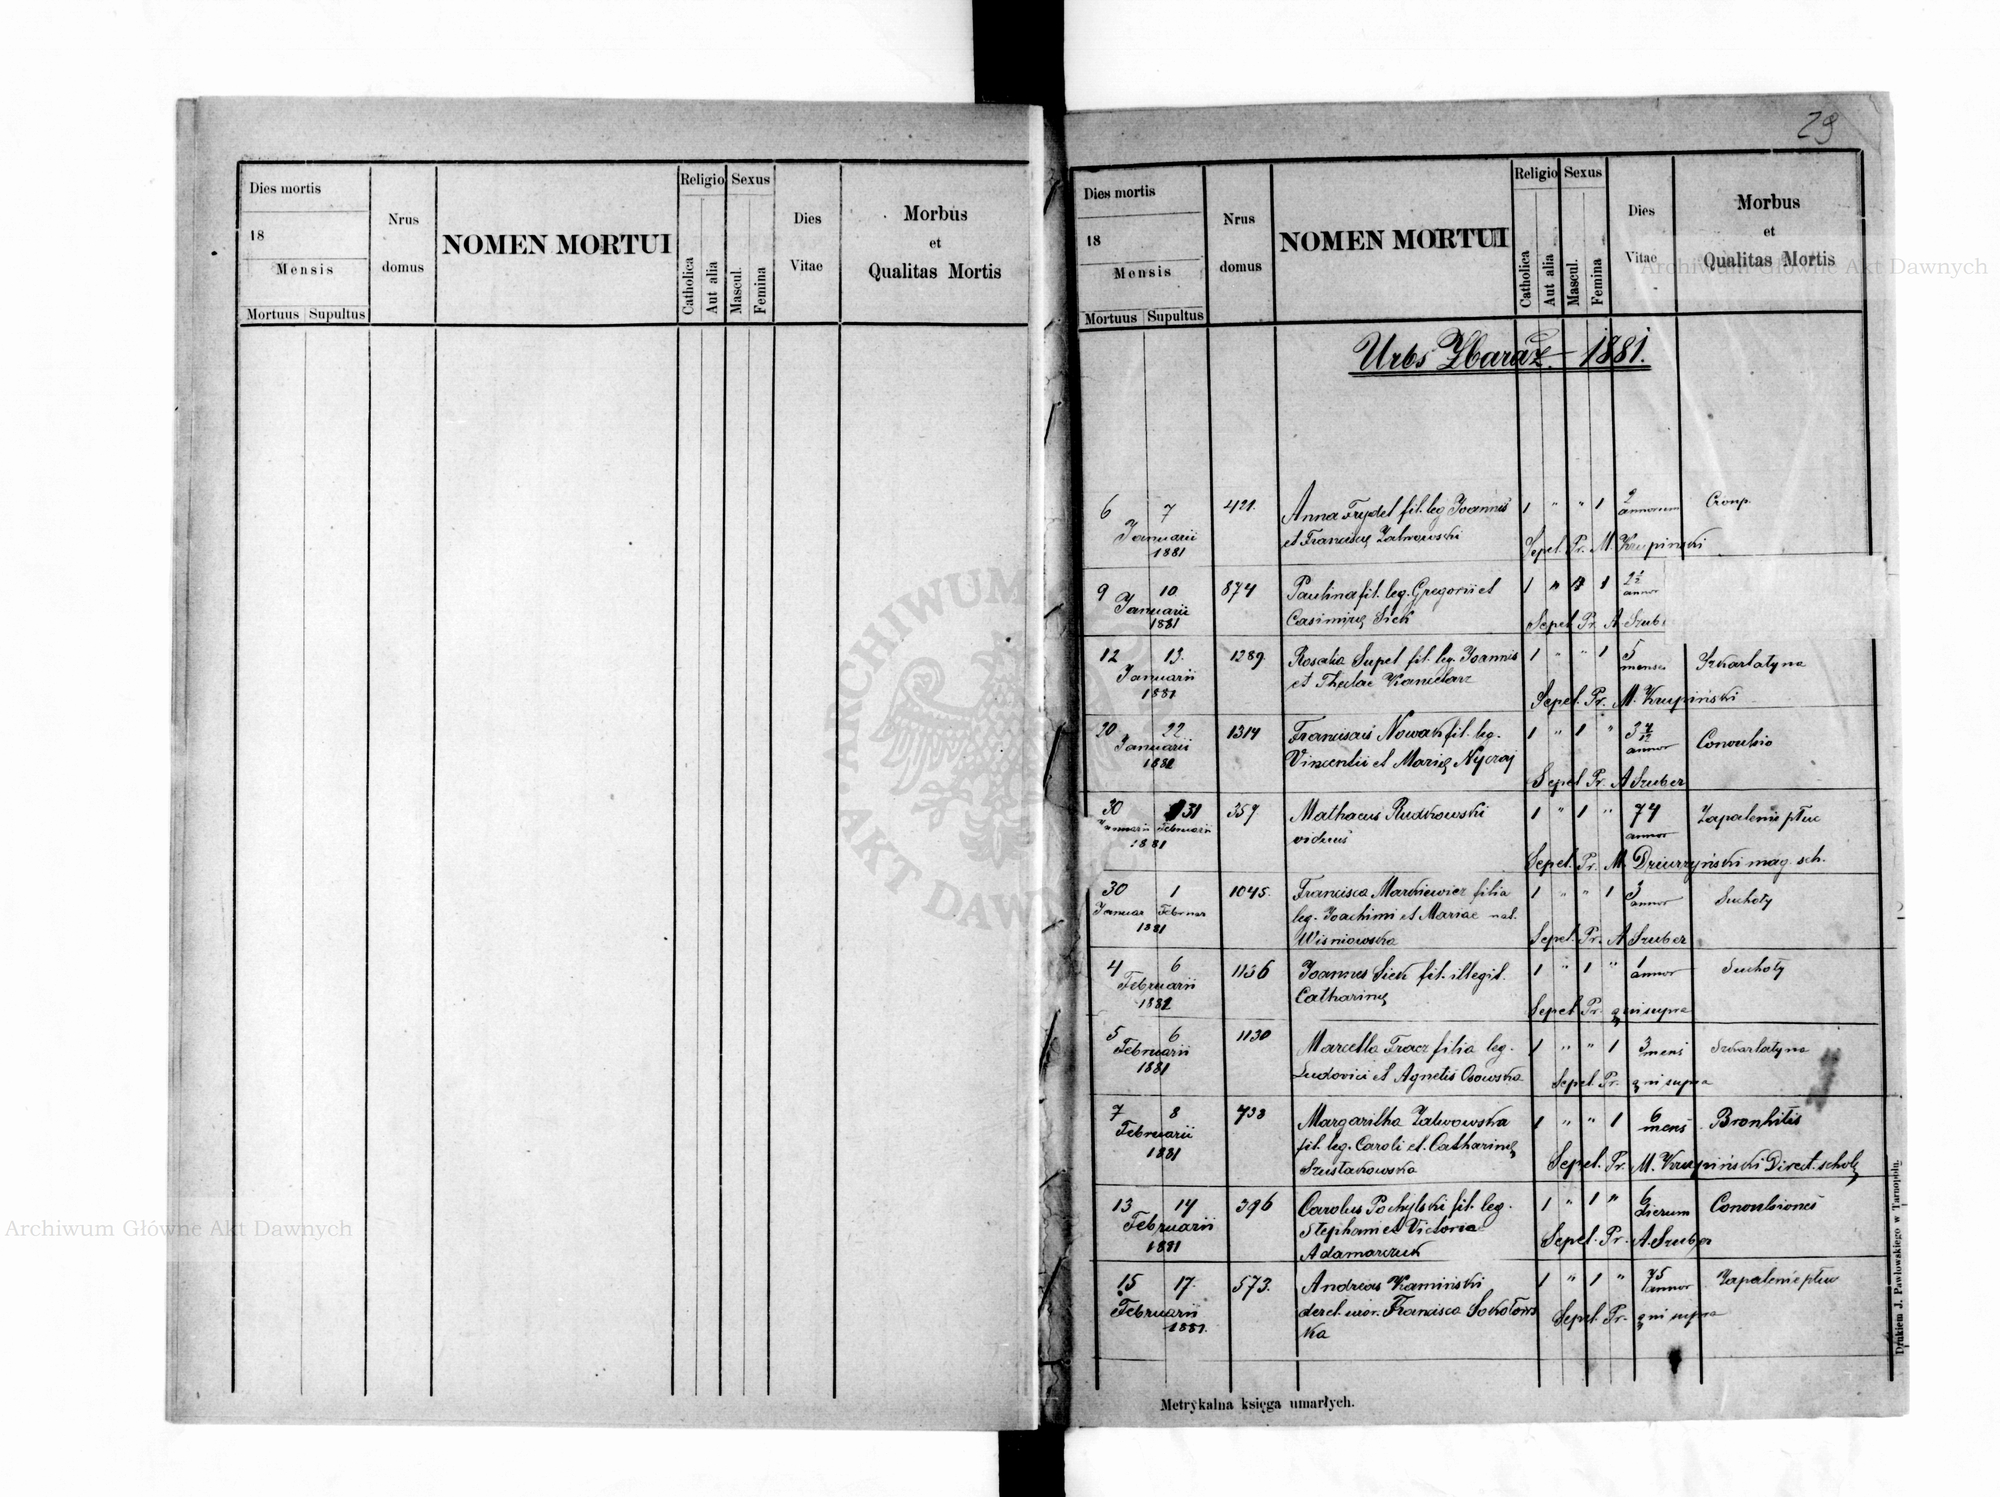 29
Dies mortis
18
Mensis
Mortuus Supultus
Nrus
domus
NOMEN MORTUI
Religio
Catholica
Aut alia
Sexus
Mascul.
Femina
Dies
Vitae
Morbus
et
Qualitas Mortis
Dies mortis
18
Mensis
Mortuus Supultus
Nrus
domus
NOMEN MORTUI
Religio
Catholica
Aut alia
Sexus
Mascul.
Femina
Dies
Vitae
Morbus
et
Qualitas Mortis
Urbs Zbaraż. – 1881.
6 7 421. Anna Frydel fil. leg Joannis 1 " " 1 2 annorum Croup.
Januarii et Franciscę Zalwowski Sepel. Pr. M. Krupinski
1881
9 10 874 Paulina fil. leg. Gregorii et 1 " 1 2½ annor
Januarii Casimirę Sick Sepel Pr. A Szuber
1881
12 13. 1289 Rosalia Supel fil. leg. Joannis 1 " " 1 5 mensis Szkarlatyna
Januarii et Theclae Kanclarz Sepel. Pr. M. Krupiński
1881
20 22 1314 Franciscus Nowak fil. leg. 1 " 1 " 3 annor Convulsio
Januarii Vincentii et Marię Nyczaj Sepel Pr. A Szuber
1881
30 31 359 Mathaeus Rudkowski 1 " 1 " 74 annor Zapalenie płuc
Januarii Februarii viduus Sepel. Pr. M. Dziurzyński mag. sch.
1881
30 1 1045. Francisca Markiewicz filia 1 " " 1 3 annor Suchoty
Januar Februar leg. Joachimi et Mariae nat.
1881 Wisniowska Sepel. Pr. A Szuber
4 6 1136 Joannes Sick fil. illegit. 1 " 1 " 1 annor Suchoty
Februarii Catharinę Sepel Pr. qui supra
1881
5 6 1130 Marcella Tracz filia leg. 1 " " 1 3 mens Szkarlatyna
Februarii Ludovici et Agnetis Osowska Sepel. Pr. qui supra
1881
7 8 738 Margaritha Zalwowska 1 " " 1 6 mens Bronhitis
Februarii fil. leg. Caroli et Catharinę
1881 Szustakowska Sepel. Pr. M. Krupiński Direct. scholę
13 14 396 Carolus Pochylski fil. leg. 1 " 1 " 6 dierum Convulsiones
Februarii Stephani et Victoria
1881 Adamarczuk Sepel. Pr. A. Szuber
15 17. 573. Andreas Kamiński 1 " 1 " 75 annor Zapalenie płuc
Februarii derel. uxor. Francisca Sokołows Sepel. Pr. qui supra
1881. ka
Metrykalna księga umarłych.
Drukiem J. Pawłowskiego w Tarnopolu.
Archiwum Główne Akt Dawnych
Archiwum Główne Akt Dawnych
ARCHIWUM
AKT DAWNYCH